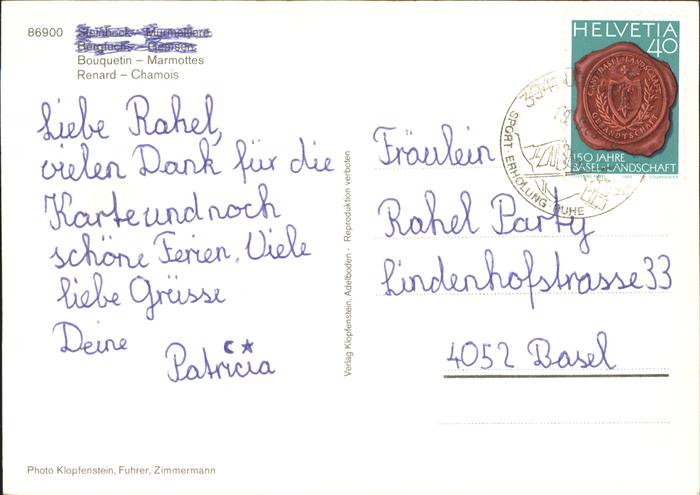 86900 Steinbock – Murmeltiere
Bergfuchs – Gemsen
Bouquetin – Marmottes
Renard – Chamois
Liebe Rahel,
vielen Dank für die
Karte und noch
schöne Ferien. Viele
liebe Grüsse
Deine
Patricia
Photo Klopfenstein, Fuhrer, Zimmermann
Verlag Klopfenstein, Adelboden - Reproduktion verboten
HELVETIA
40
CANT. BASEL-LANDSCHAFT
GESANDTSCHAFT
150 JAHRE
BASEL-LANDSCHAFT
SPORT ERHOLUNG RUHE
Fräulein
Rahel Party
Lindenhofstrasse 33
4052 Basel